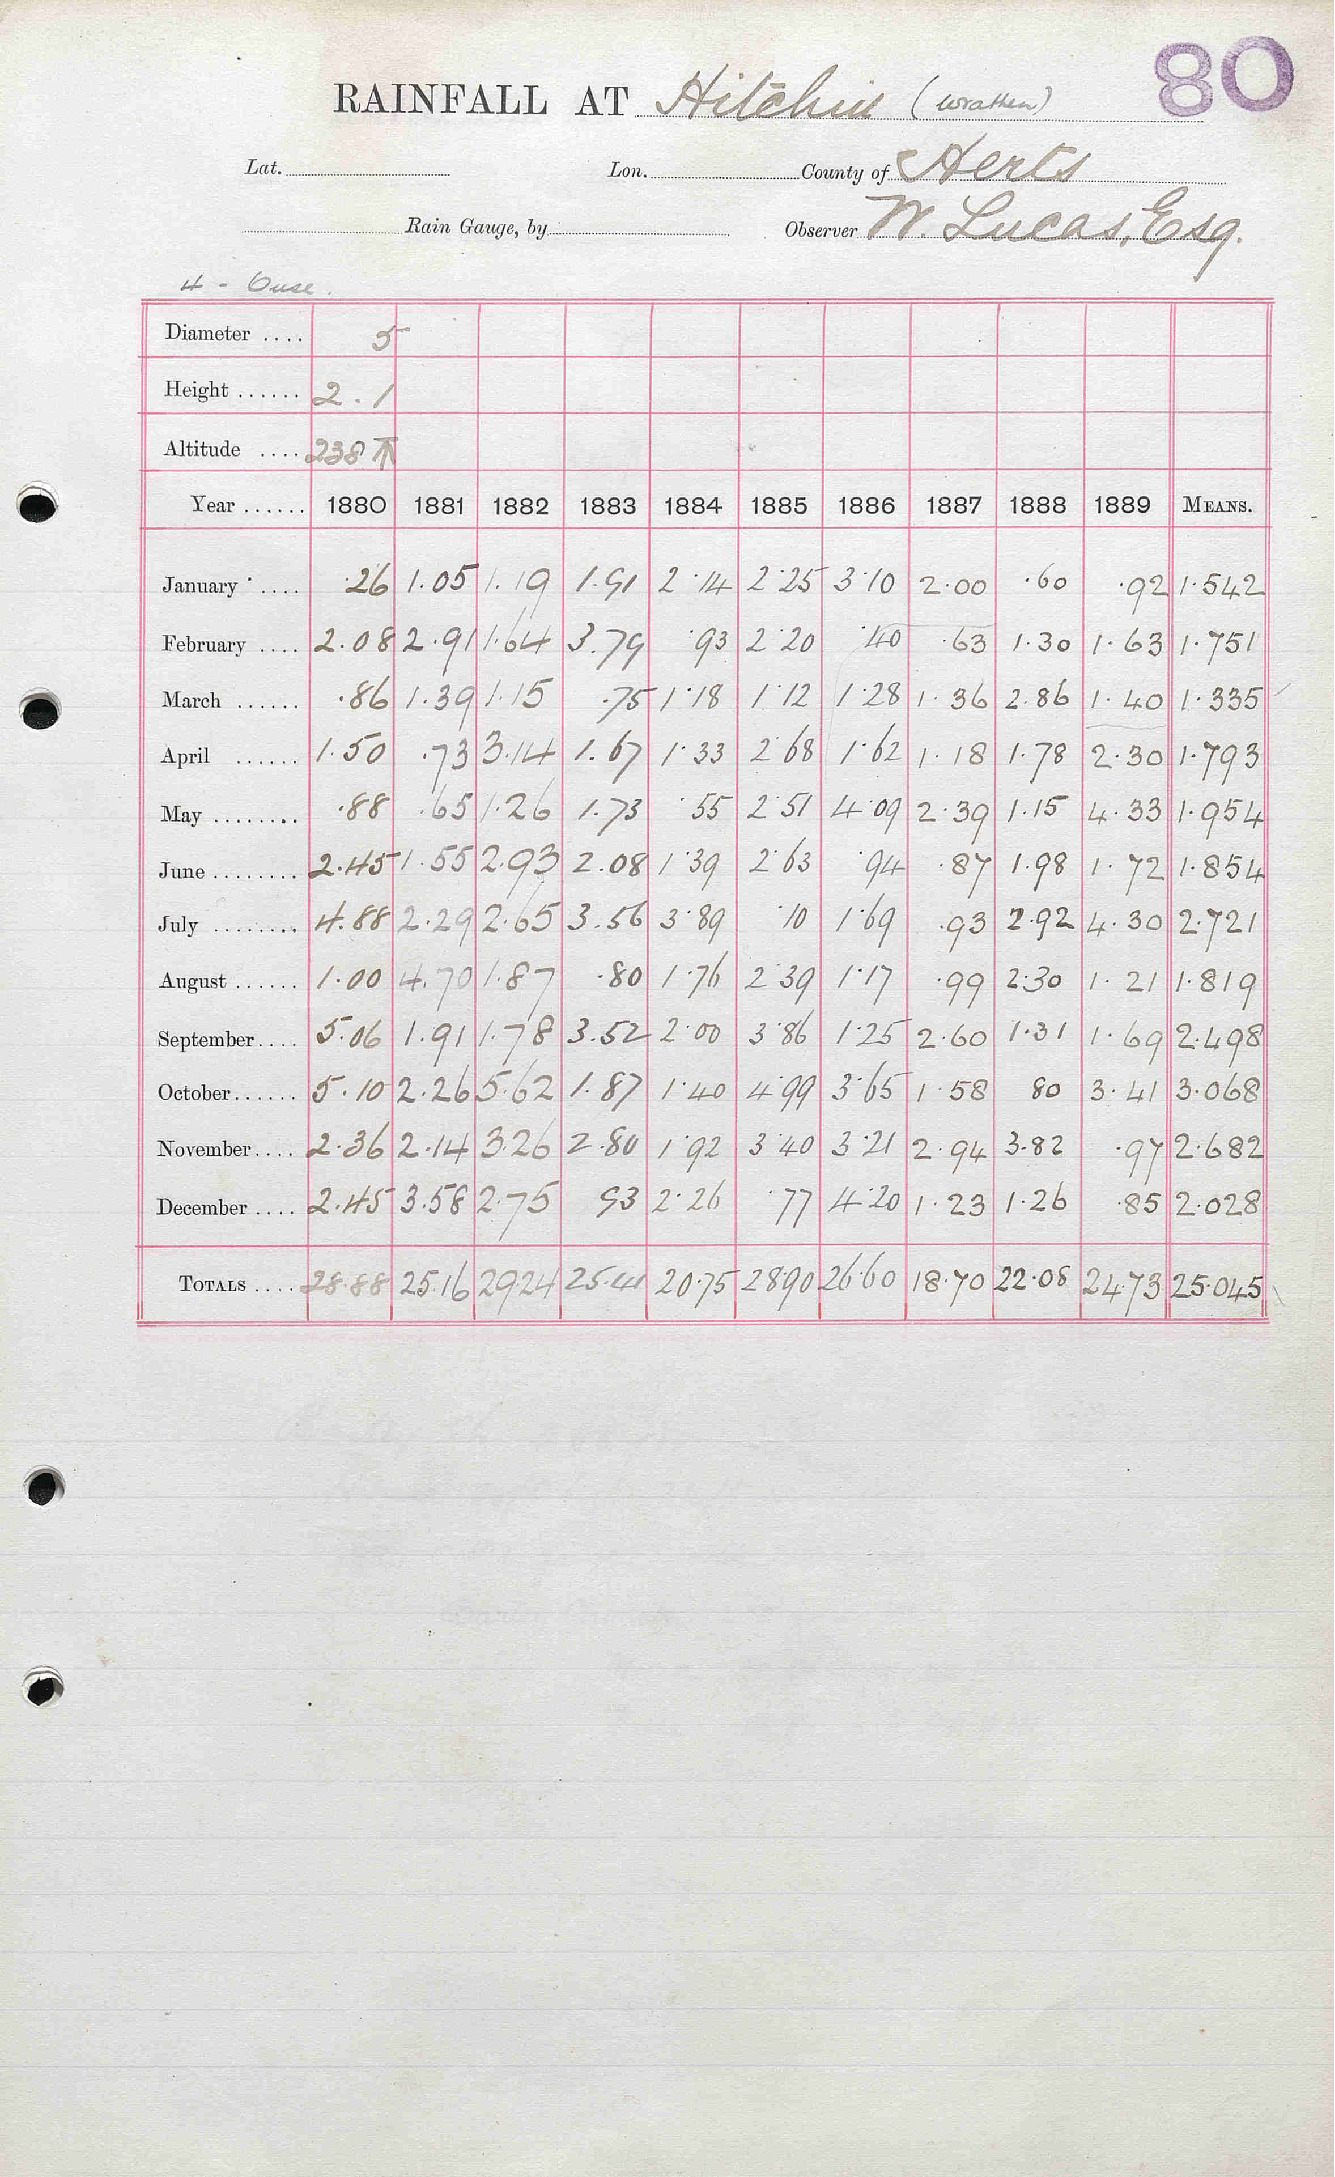 80
RAINFALL AT Hitchin (Wratten)
Lat. Lon. County of Herts
Rain Gauge, by Observer W. Lucas, Esq.
4 - Ouse.
Diameter .... 5
Height ...... 2.1
Altitude .... 238 T
Year ...... 1880 1881 1882 1883 1884 1885 1886 1887 1888 1889 MEANS.
January .... .26 1.05 1.19 1.91 2.14 2.25 3.10 2.00 .60 .92 1.542
February .... 2.08 2.91 1.64 3.79 .93 2.20 .40 .63 1.30 1.63 1.751
March ...... .86 1.39 1.15 .75 1.18 1.12 1.28 1.36 2.86 1.40 1.335
April ...... 1.50 .73 3.14 1.67 1.33 2.68 1.62 1.18 1.78 2.30 1.793
May ........ .88 .65 1.26 1.73 .55 2.51 4.09 2.39 1.15 4.33 1.954
June ........ 2.45 1.55 2.93 2.08 1.39 2.63 .94 .87 1.98 1.72 1.854
July ........ 4.88 2.29 2.65 3.56 3.89 .10 1.69 .93 2.92 4.30 2.721
August ...... 1.00 4.70 1.87 .80 1.76 2.39 1.17 .99 2.30 1.21 1.819
September.... 5.06 1.91 1.78 3.52 2.00 3.86 1.25 2.60 1.31 1.69 2.498
October...... 5.10 2.26 5.62 1.87 1.40 4.99 3.65 1.58 80 3.41 3.068
November.... 2.36 2.14 3.26 2.80 1.92 3.40 3.21 2.94 3.82 .97 2.682
December .... 2.45 3.58 2.75 93 2.26 .77 4.20 1.23 1.26 .85 2.028
TOTALS .... 28.88 25.16 29.24 25.41 20.75 28.90 26.60 18.70 22.08 24.73 25.045